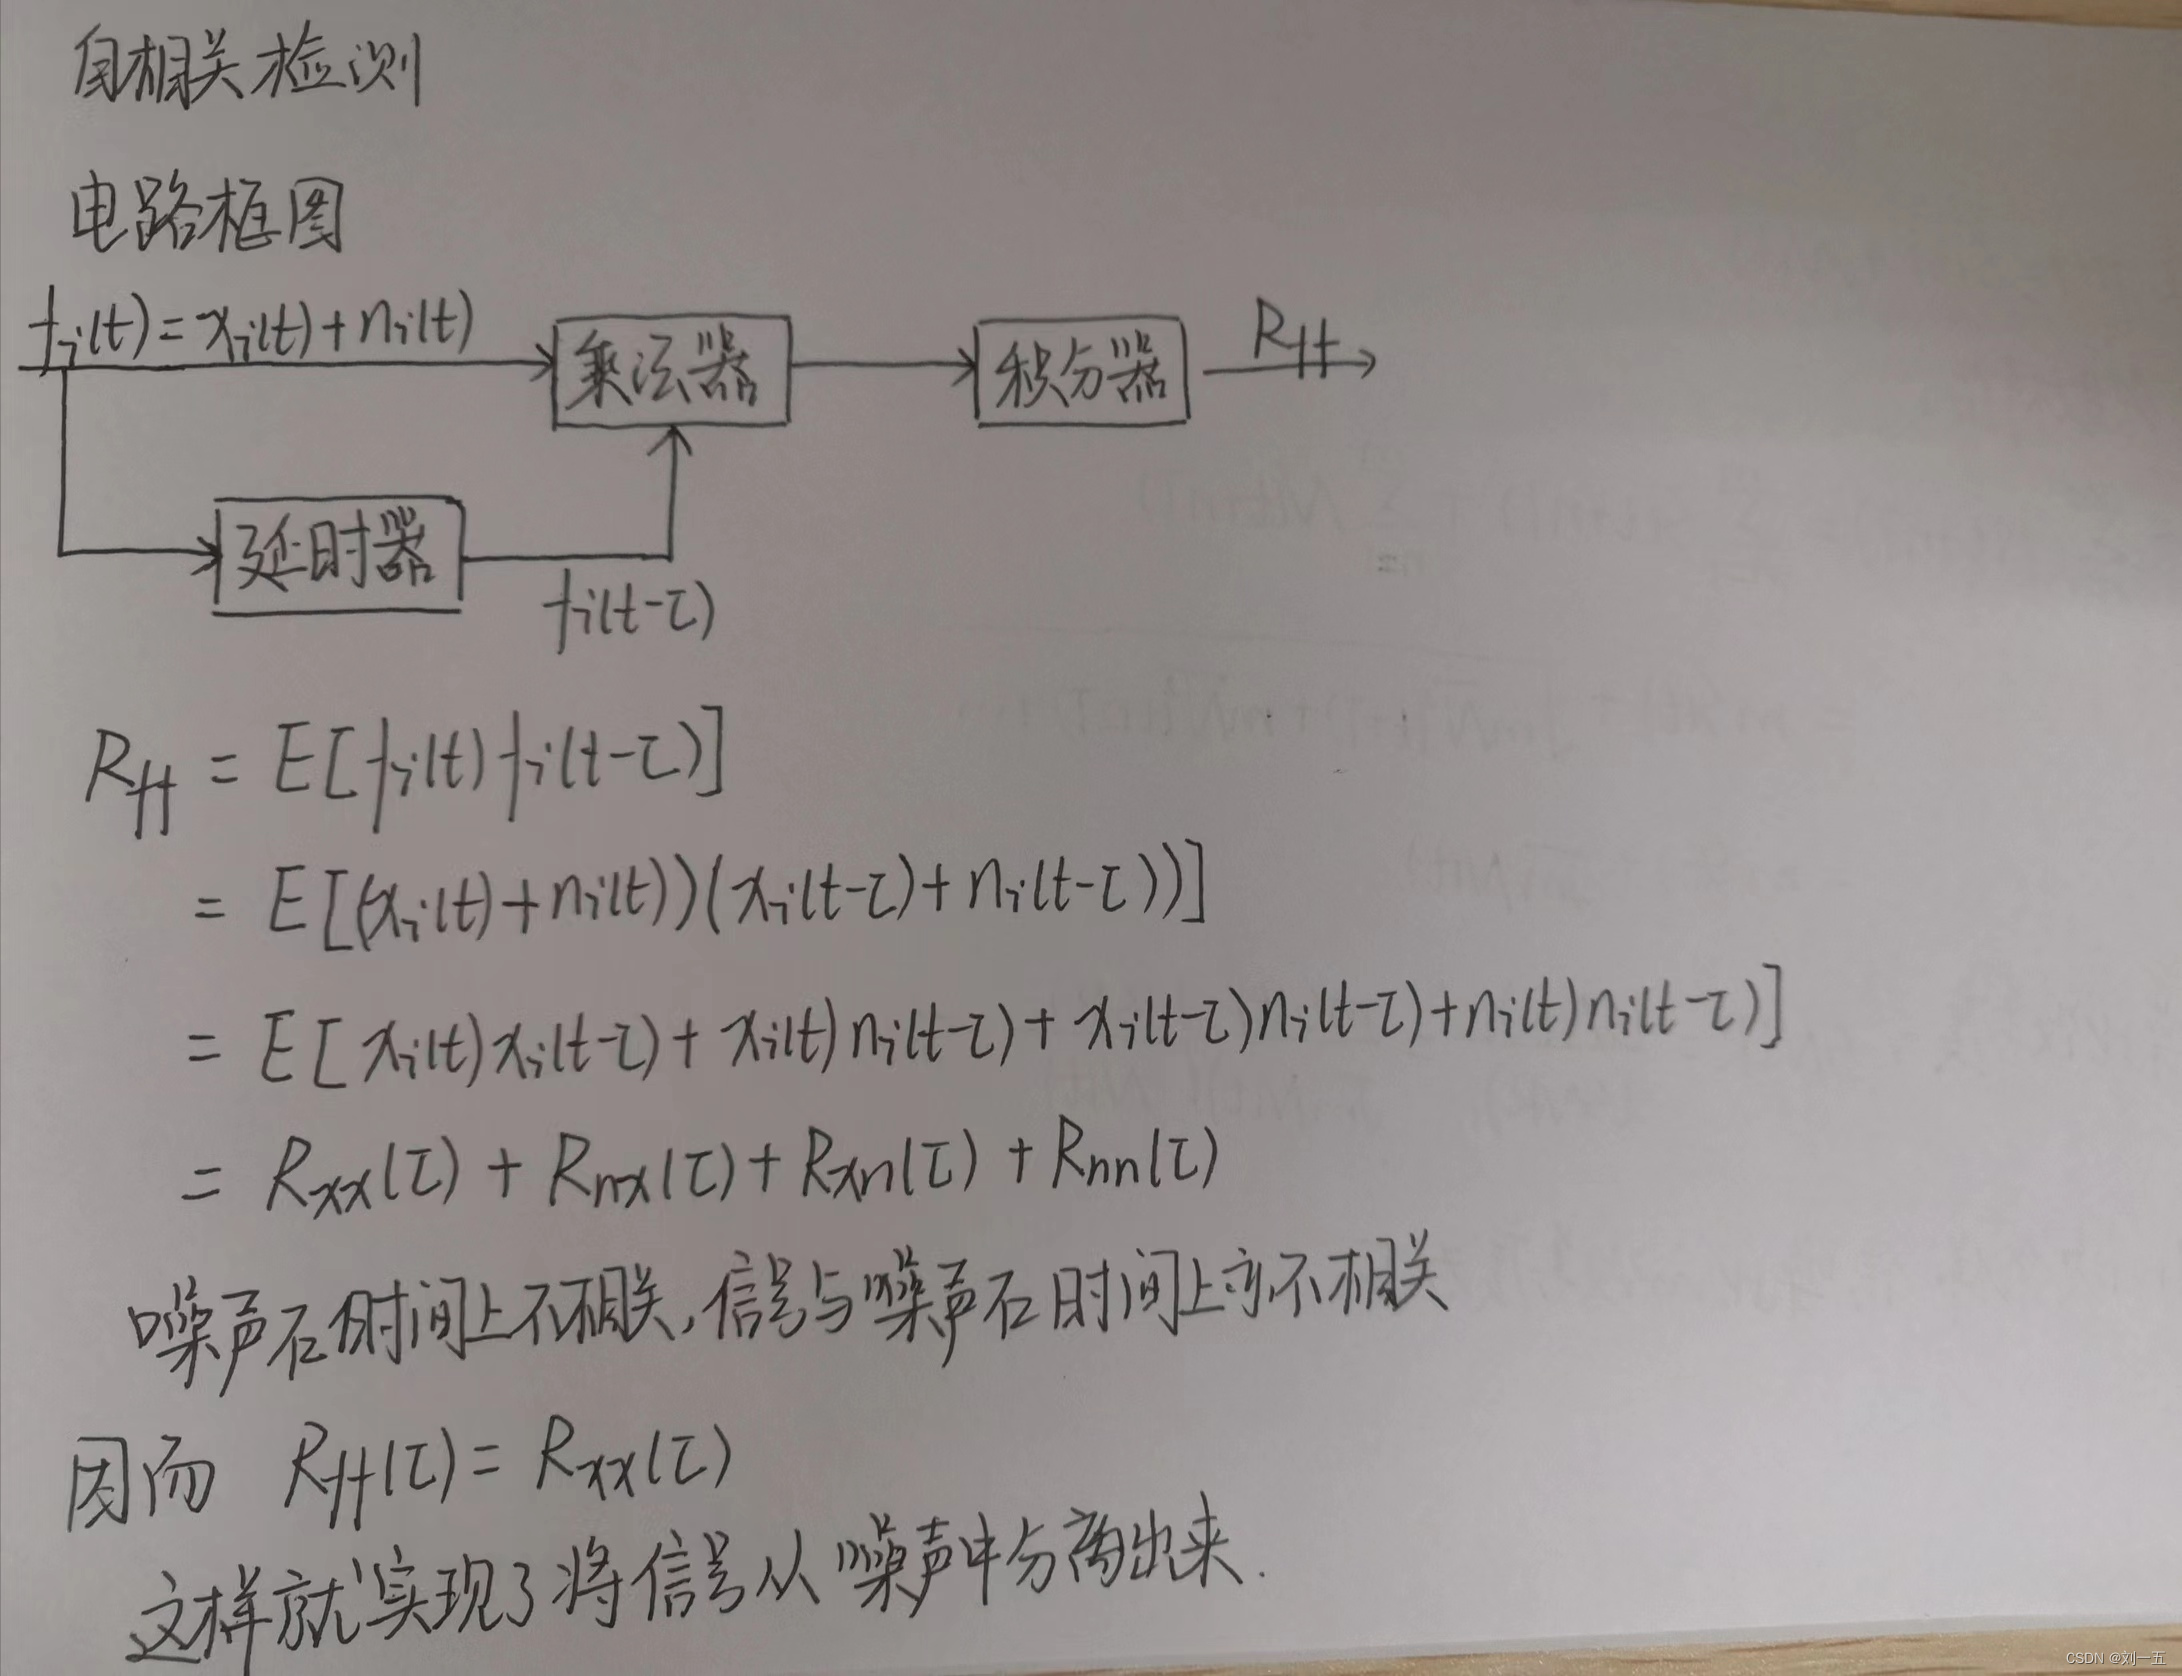 自相关检测
电路框图
fi(t)=xi(t)+ni(t)
乘法器
积分器
Rff
延时器
fi(t-τ)
Rff = E[fi(t)fi(t-τ)]
= E[(xi(t)+ni(t))(xi(t-τ)+ni(t-τ))]
= E[xi(t)xi(t-τ)+xi(t)ni(t-τ)+xi(t-τ)ni(t-τ)+ni(t)ni(t-τ)]
= Rxx(τ)+Rnx(τ)+Rxn(τ)+Rnn(τ)
噪声在时间上不相关,信号与噪声在时间上亦不相关
因而 Rff(τ)=Rxx(τ)
这样就实现了将信号从噪声中分离出来.
CSDN @刘一五